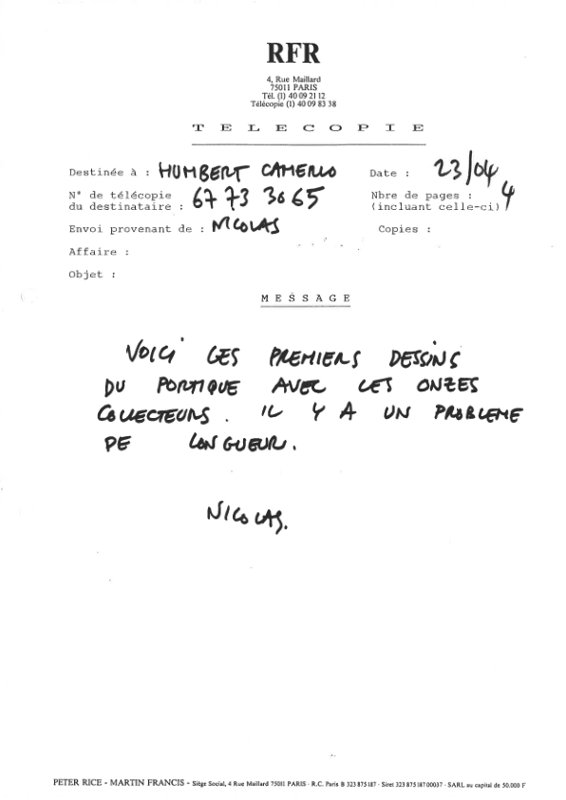 RFR
4, Rue Maillard
75011 PARIS
Tél. (1) 40 09 21 12
Télécopie (1) 40 09 83 38
T E L E C O P I E
Destinée à : HUMBERT CAMERLO Date : 23/04
N° de télécopie Nbre de pages : 4
du destinataire : 67 73 30 65 (incluant celle-ci)
Envoi provenant de : NICOLAS Copies :
Affaire :
Objet :
M E S S A G E
VOICI LES PREMIERS DESSINS
DU PORTIQUE AVEC LES ONZES
COLLECTEURS. IL Y A UN PROBLEME
DE LONGUEUR.
NICOLAS.
PETER RICE - MARTIN FRANCIS - Siège Social, 4 Rue Maillard 75011 PARIS - R.C. Paris B 323 875 187 - Siret 323 875 187 00037 - SARL au capital de 50.000 F